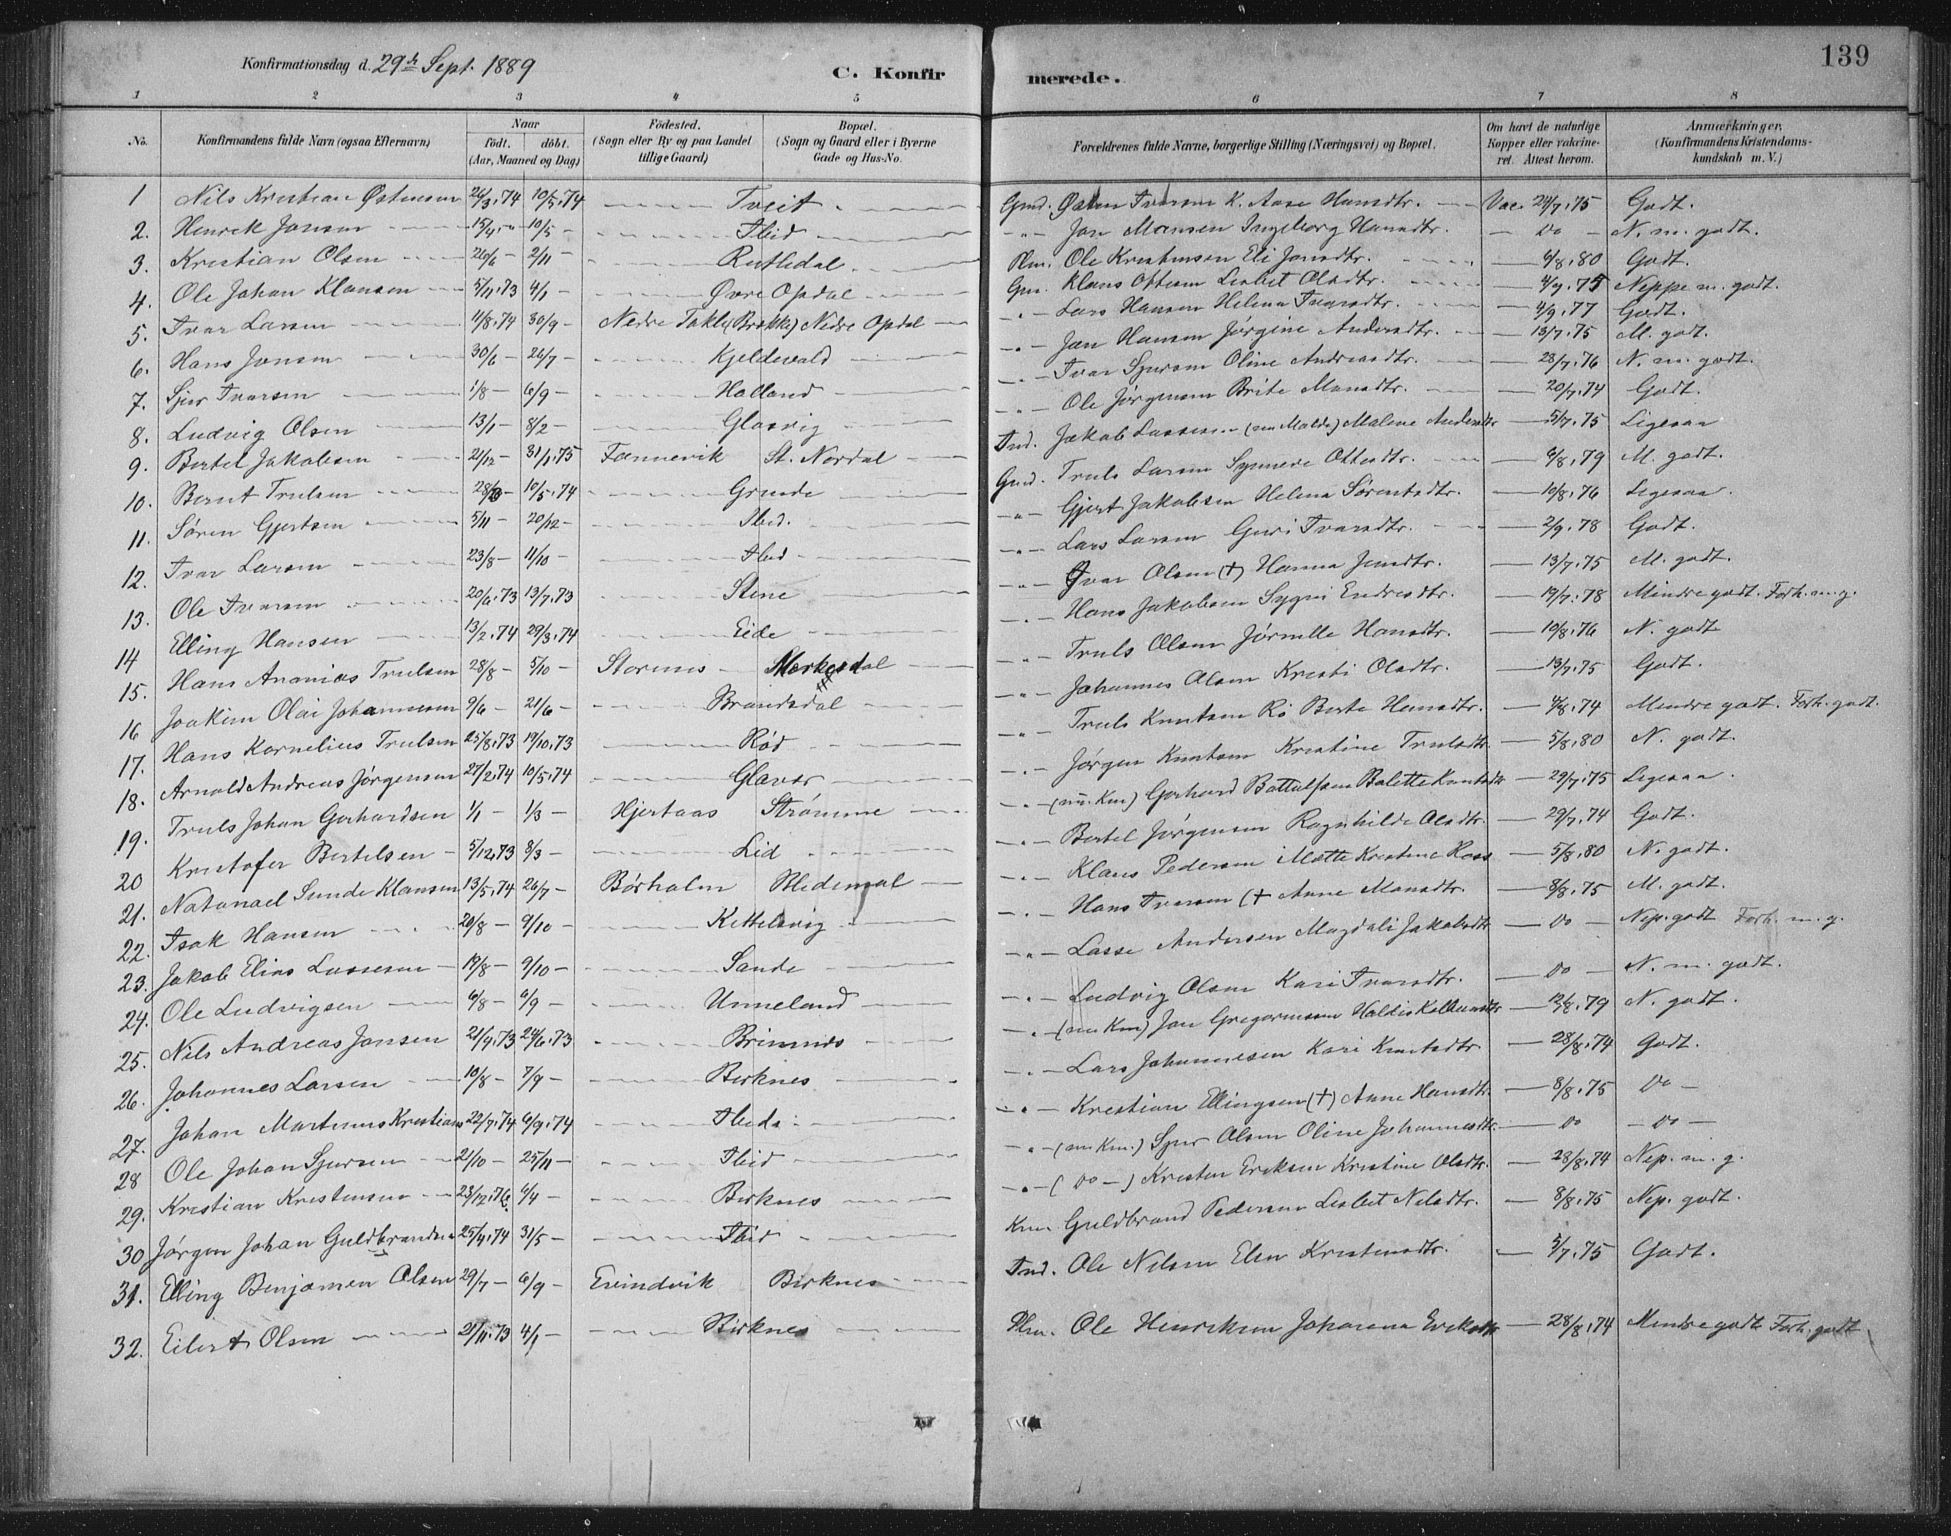 Konfirmationsdag d. 29de Sept. 1889 C. Konfirmerede. 139
1 2 3 4 5 6 7 8
No. Konfirmandens fulde Navn (ogsaa Efternavn) Naar født. døbt. (Aar, Maaned og Dag) Fødested. (Sogn eller By og paa Landet tillige Gaard) Bopæl. (Sogn og Gaard eller i Byerne Gade og Hus-No. Forældrenes fulde Navne, borgerlige Stilling (Næringsvei) og Bopæl. Om havt de naturlige Kopper eller vakcineret. Attest herom. Anmærkninger. (Konfirmandens Kristendomskundskab m. V.)
1 Nils Kristian Østensen 26/3.74 10/5.74 — Tveit — Gmd. Østen Ivarsen K. Aase Hansdtr. — Vac. 24/7.75 Godt.
2. Henrik Jansen 15/4 — 10/5 — Ibid — " — Jan Monsen Ingeborg Hansdtr. — Do — N. m. godt.
3. Kristian Olsen 26/6 — 2/11 — Rutledal — Plm. Ole Kristensen Eli Jansdtr. — 4/8.80 Godt.
4. Ole Johan Klausen 5/11.73 4/1 — Øvre Opdal — Gm. Klaus Ottesen Lisbet Olsdtr. — 4/9.75 Neppe m. godt.
5. Ivar Larsen 11/8.74 30/9 — Nedre Takle (Brekke) Nedre Opdal — " — Lars Hansen Helena Ivarsdtr. — 4/9.77 Godt.
6. Hans Jansen 30/6 — 26/7 — Kjeldevald — " — Jan Hansen Jørgine Andersdtr. — 13/7.75 M. godt.
7. Sjur Ivarsen 1/8 — 6/9 — Halland — " — Ivar Sjursen Oline Andreasdtr. — 28/7.76 N. m. godt.
8. Ludvig Olsen 13/1 — 8/2 — Glosvig — " — Ole Jørgensen Brite Monsdtr. — 20/7.74 Godt.
9. Bertel Jakobsen 21/12 — 31/1.75 Fonnevik St. Nordal — Ind. Jakob Lassesen Malene Andersdtr — 5/7.75 Ligesaa
10. Bernt Trulsen 28/3 — 10/5.74 — Grinde — Gmd. Truls Larsen Synneve Ottesdtr. — 6/8.79 M. godt.
11. Søren Gjertsen 5/11 — 20/12 — Ibid. — " — Gjert Jakobsen Helena Sørensdtr. — 10/8.76 Ligesaa.
12. Ivar Larsen 23/8 — 11/10 — Ibid — " — Lars Larsen Guri Ivarsdtr. — 2/9.78 Godt.
13. Ole Ivarsen 20/6.73 13/7.73 — Stene — " — Ivar Olsen (†) Hanna Jensdtr. — 13/7.75 M. godt.
14 Elling Hansen 13/2.74 29/3.74 — Eide — " — Hans Jakobsen Sygni Endresdtr. — 19/7.78 Mindre godt. Forh. m. g.
15. Hans Ananias Trulsen 28/8 — 5/10 — Storenes — Merkesdal — " — Truls Olsen Jørnille Hansdtr. — 10/8.76 N. godt
16 Joakim Olai Johannesen 9/6 — 21/6 — Brandsdal — " — Johannes Olsen Kristi Olsdtr. — 13/7.75 Godt.
17. Hans Kornelius Trulsen 25/8.73 19/10.73 — Rød — " — Truls Knutsen Rø Berte Hansdtr. — 4/8.74 Mindre godt. Forh. godt.
18. Arnold Andreas Jørgensen 27/2.74 10/5.74 — Glavær — " — Jørgen Knutsen Kristine Trulsdtr. — 5/8.80 N. godt.
19. Truls Johan Gerhardsen 1/1 — 1/3 — Hjertaas Strømme — " — (nu Km) Gerhard Battulfsen Bolette Knutsdtr — 29/7.75 Ligesaa.
20 Kristofer Bertelsen — 5/12.73 8/3 — Lid — " — Bertel Jørgensen Ragnhilde Olsdtr. — 29/7.74 Godt.
21. Natanael Sunde Klausen 13/5.74 26/7 — Børholm Hedemal — " — Klaus Pedersen Mette Kristine Ross — 5/8.80 N. godt.
22. Isak Hansen 20/8 — 9/10 — Kittelsvig — " — Hans Ivarsen († Anne Monsdtr. — 8/8.75 M. godt.
23. Jakob Elias Lassesen — 19/8 — 9/10 — Sande — " — Lasse Andersen Magdali Jakobsdtr — Do — Nep. godt Forh. m. g.
24. Ole Ludvigsen 6/8 — 6/9 — Unneland — " — Ludvig Olsen Kari Ivarsdtr. — Do — N. m. godt.
25. Nils Andreas Jansen 21/9.73 24/6.73 — Brimnes — " — (nu Km) Jan Gregoriussen Haldis — 12/8.79 N. godt.
26. Johannes Larsen 10/8 — 7/9 — Birknes — " — Lars Johannesen Kari Knutsdtr. — 28/8.74 Godt.
27. Johan Martinus Kristians 22/7.74 6/9.74 — Ibid. — " — Kristian Ellingsen (†) Anne Hansdtr. — 8/8.75 Do —
28 Ole Johan Sjursen 21/10 — 25/11 — Ibid — " — (nu Km.) Sjur Olsen Oline Johannesdtr. — Do — Do —
29. Kristian Kristensen — 23/12.76 6/4 — Birknes — " — (Do —) Kristen Eriksen Kristine Olsdtr. — 28/8.74 Nep. m. g.
30 Jørgen Johan Guldbrandsen 25/4.74 31/5 — Ibid — Km. Guldbrand Pedersen Lisbet Nilsdtr. — 8/8.75 Nep. godt.
31. Elling Benjamin Olsen 29/7 — 6/9 — Evindvik Birknes — Ind. Ole Nilsen Elen Kristensdtr. — 5/7.75 Godt.
32. Eilert Olsen — 27/11.73 4/1 — Birknes — Plm. Ole Henriksen Johanna Eriksdtr — 28/8.74 Mindre godt Forh. godt